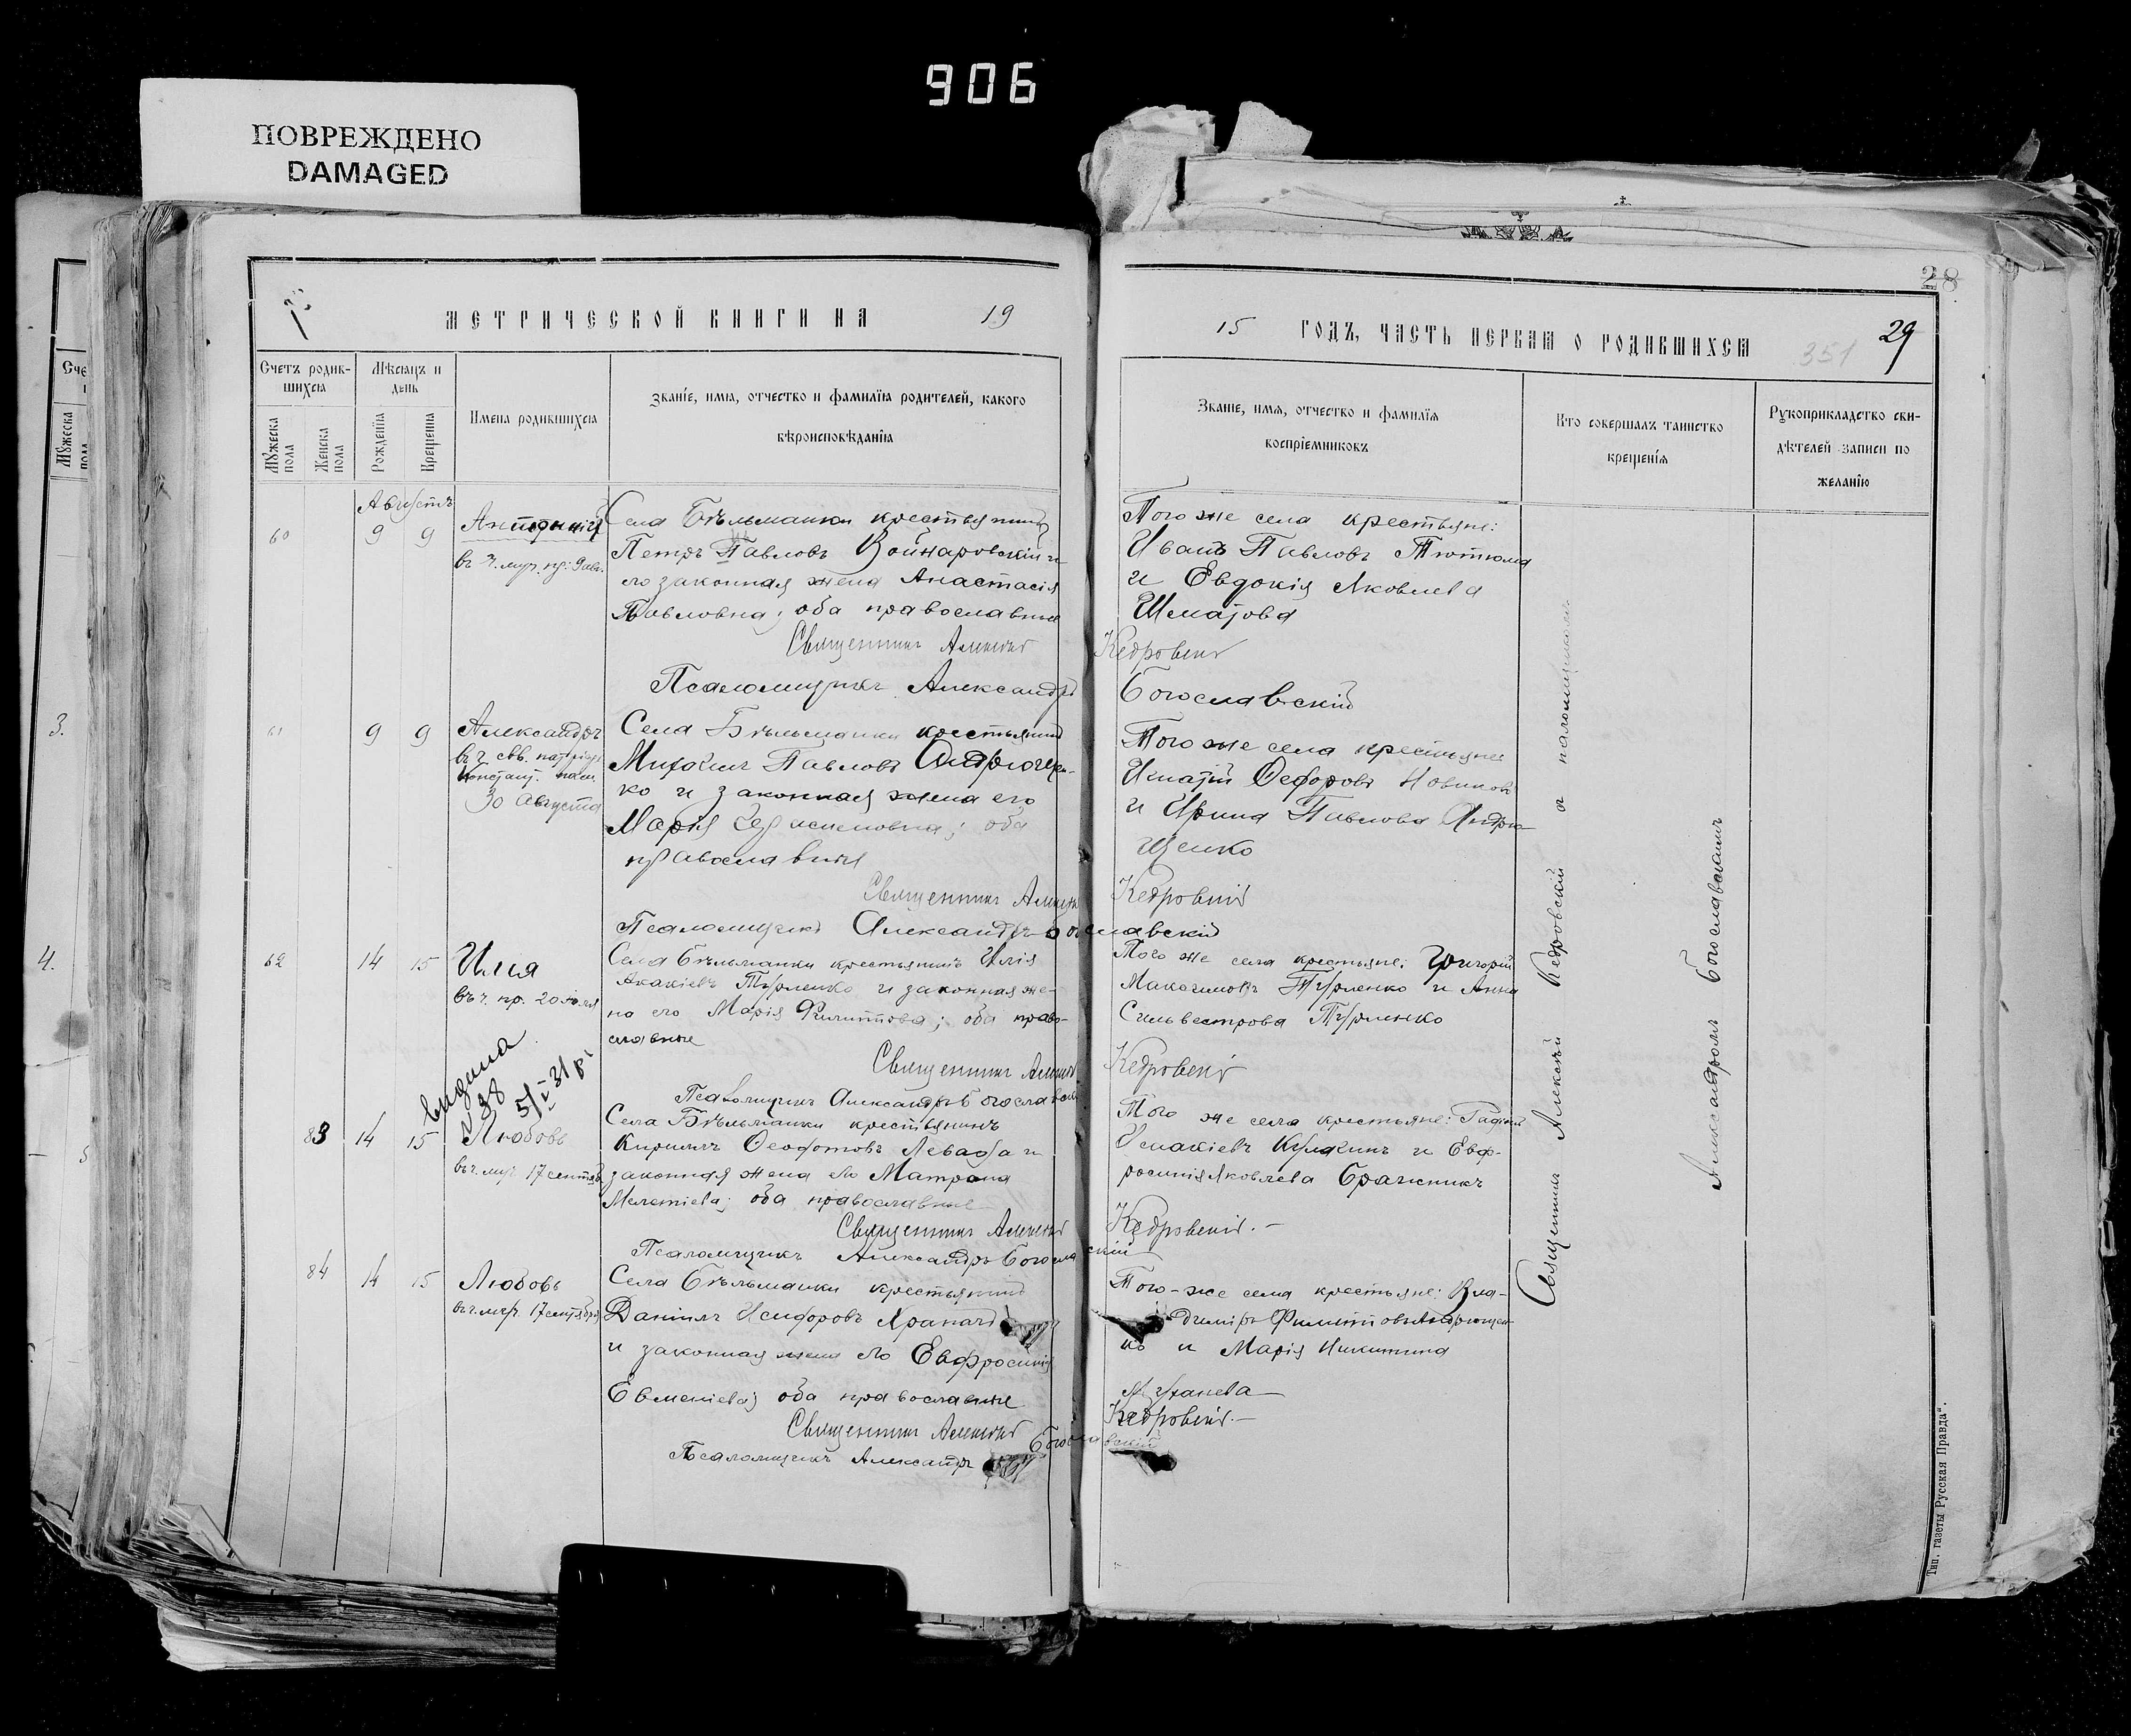 906
ПОВРЕЖДЕНО
DAMAGED
28
МЕТРИЧЕСКОЙ КНИГИ НА 19
15 ГОДЪ, ЧАСТЬ ПЕРВАЯ О РОДИВШИХСЯ 351 29
Счетъ родив-
шихся
Мѣсяцъ и
день
Мужеска
пола
Женска
пола
Рожденія
Крещенія
Имена родившихся
Званіе, имя, отчество и фамилія родителей, какого
вѣроисповѣданія
Званіе, имя, отчество и фамилія
воспріемниковъ
Кто совершалъ таинство
крещенія
Рукоприкладство сви-
дѣтелей записи по
желанію
Августъ
60 9 9
Села Бѣльманки крестьянинъ
Петръ Павловъ Войнаровскій и
его законная жена Анастасія
Павловна; оба православные
Священникъ Алексій Кедровскій
Псаломщикъ Александръ Богославскій
Того же села крестьяне:
Иванъ Павловъ Тютюма
и Евдокія Яковлева
Шматова
61 9 9 Александръ
30 августа
Села Бѣльманки крестьянинъ
Михаилъ Павловъ Андрющен-
ко и законная жена его
Марія Герасимовна; оба
православные
Священникъ Алексій Кедровскій
Псаломщикъ Александръ Богославскій
Того же села крестьяне
Игнатій Федоровъ Новиковъ
и Ирина Павлова Андрю-
щенко
62 14 15 Илія
въ ч. пр. 20 іюля
Села Бѣльманки крестьянинъ Илія
Акакіевъ Турленко и законная же-
на его Марія Филиппова; оба право-
славные
Священникъ Алексій Кедровскій
Псаломщикъ Александръ Богославскій
Того же села крестьяне: Григорій
Максимовъ Турленко и Анна
Сильвестрова Турленко
Видана
38
83 14 15 Любовь
въ ч. муч. 17 сентяб.
Села Бѣльманки крестьянинъ
Кириллъ Феофотовъ Левада и
законная жена его Матрона
Мелетіева; оба православные
Священникъ Алексій Кедровскій.
Псаломщикъ Александръ Богославскій
Того же села крестьяне:
и Евф-
росинія Яковлева
84 14 15 Любовь
въ ч. муч. 17 сентября
Села Бѣльманки крестьянинъ
Даніилъ Исидоровъ Храпачъ
и законная жена его Евфросинія
Евменіева; оба православные
Священникъ Алексій Кедровскій.
Псаломщикъ Александръ Богославскій
Того-же села крестьяне: Вла-
диміръ Филипповъ Андрющен-
ко и Марія Никитина
Священникъ Алексѣй Кедровскій и
Александромъ Богославскимъ
Тип. газеты „Русская Правда“.
3.
4.